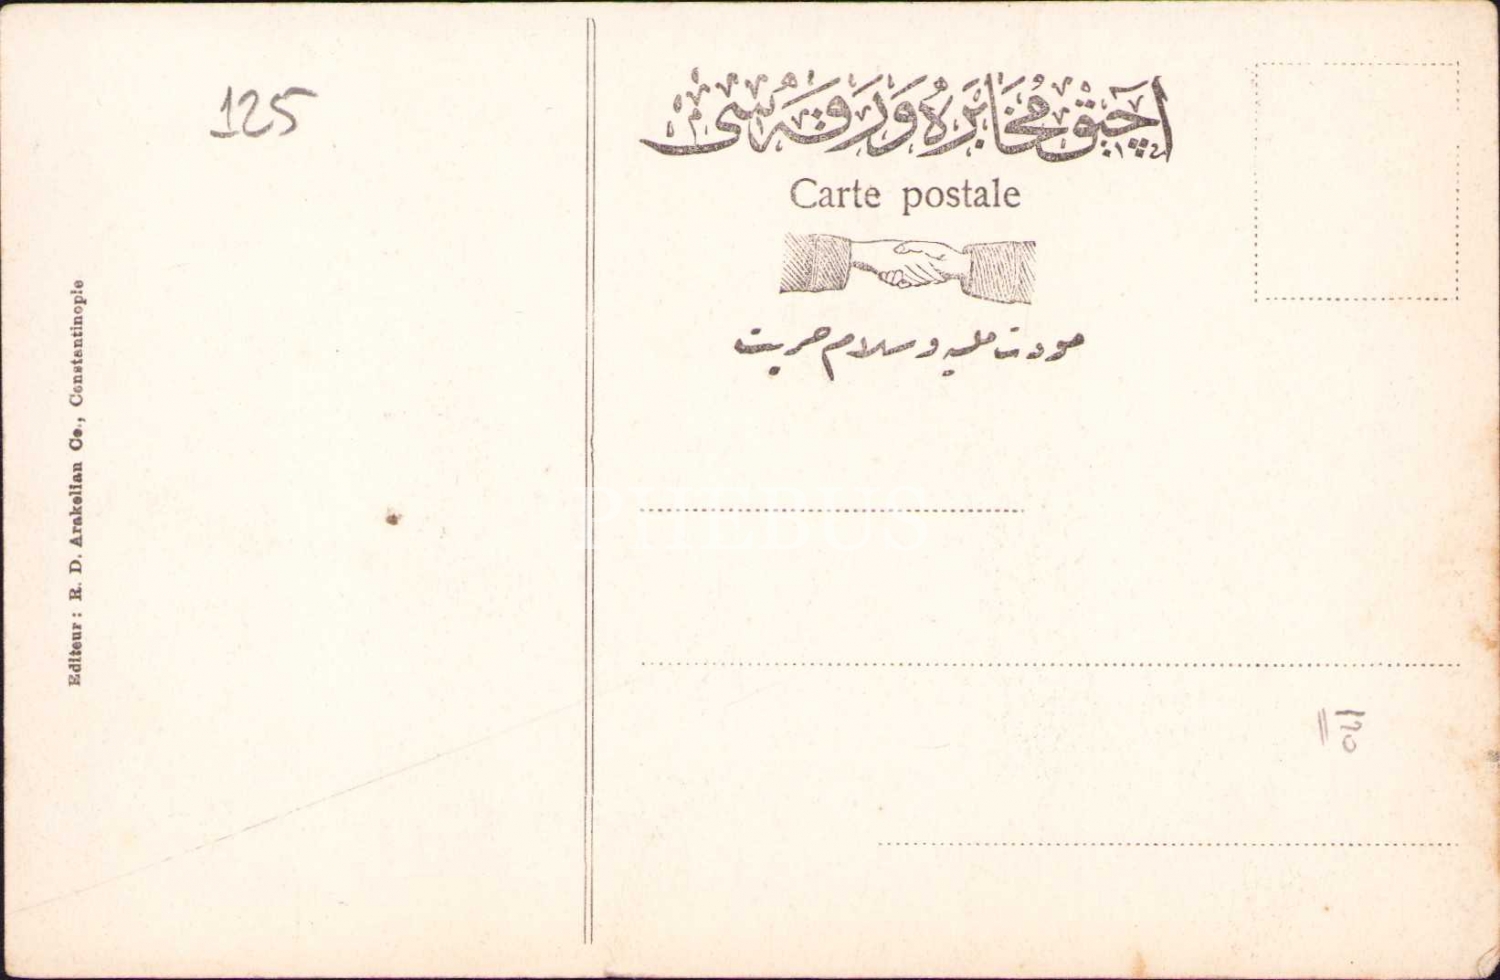 125
Editeur : R. D. Arakelian Co., Constantinople
آچیق مُخَابَرَهُ وَرَقَه سُی
Carte postale
مودت ملیه و سلام حریت
PHEBUS